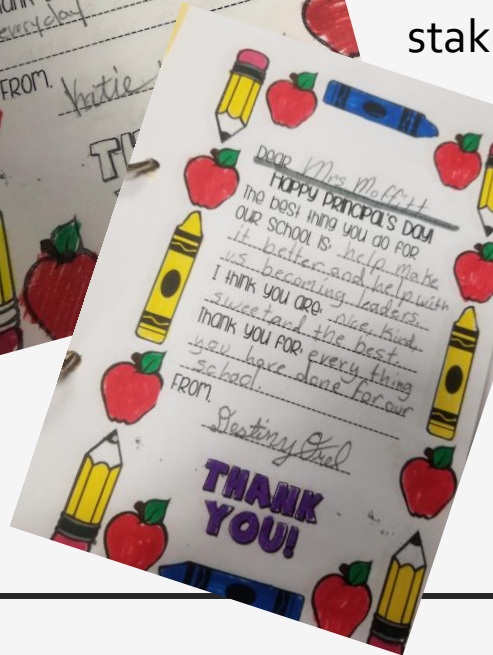 everyday
FROM,
Katie
stak
DEAR Mrs Moffitt
HAPPY PRINCIPAL'S DAY!
The best thing you do for
our school is: help make
it better and help with
us becoming leaders.
I think you are: nice, kind,
sweet and the best
Thank you for: every thing
you have done for our
school.
FROM,
Destiny
THANK
YOU!